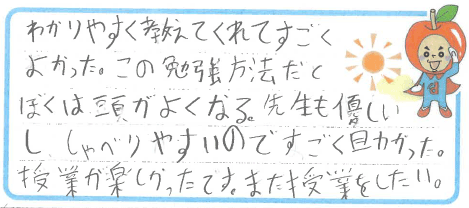 わかりやすく教えてくれてすごく
よかった。この勉強方法だと
ぼくは頭がよくなる。先生も優しい
し、しゃべりやすいのですごく助かった。
授業が楽しかったです。また授業をしたい。